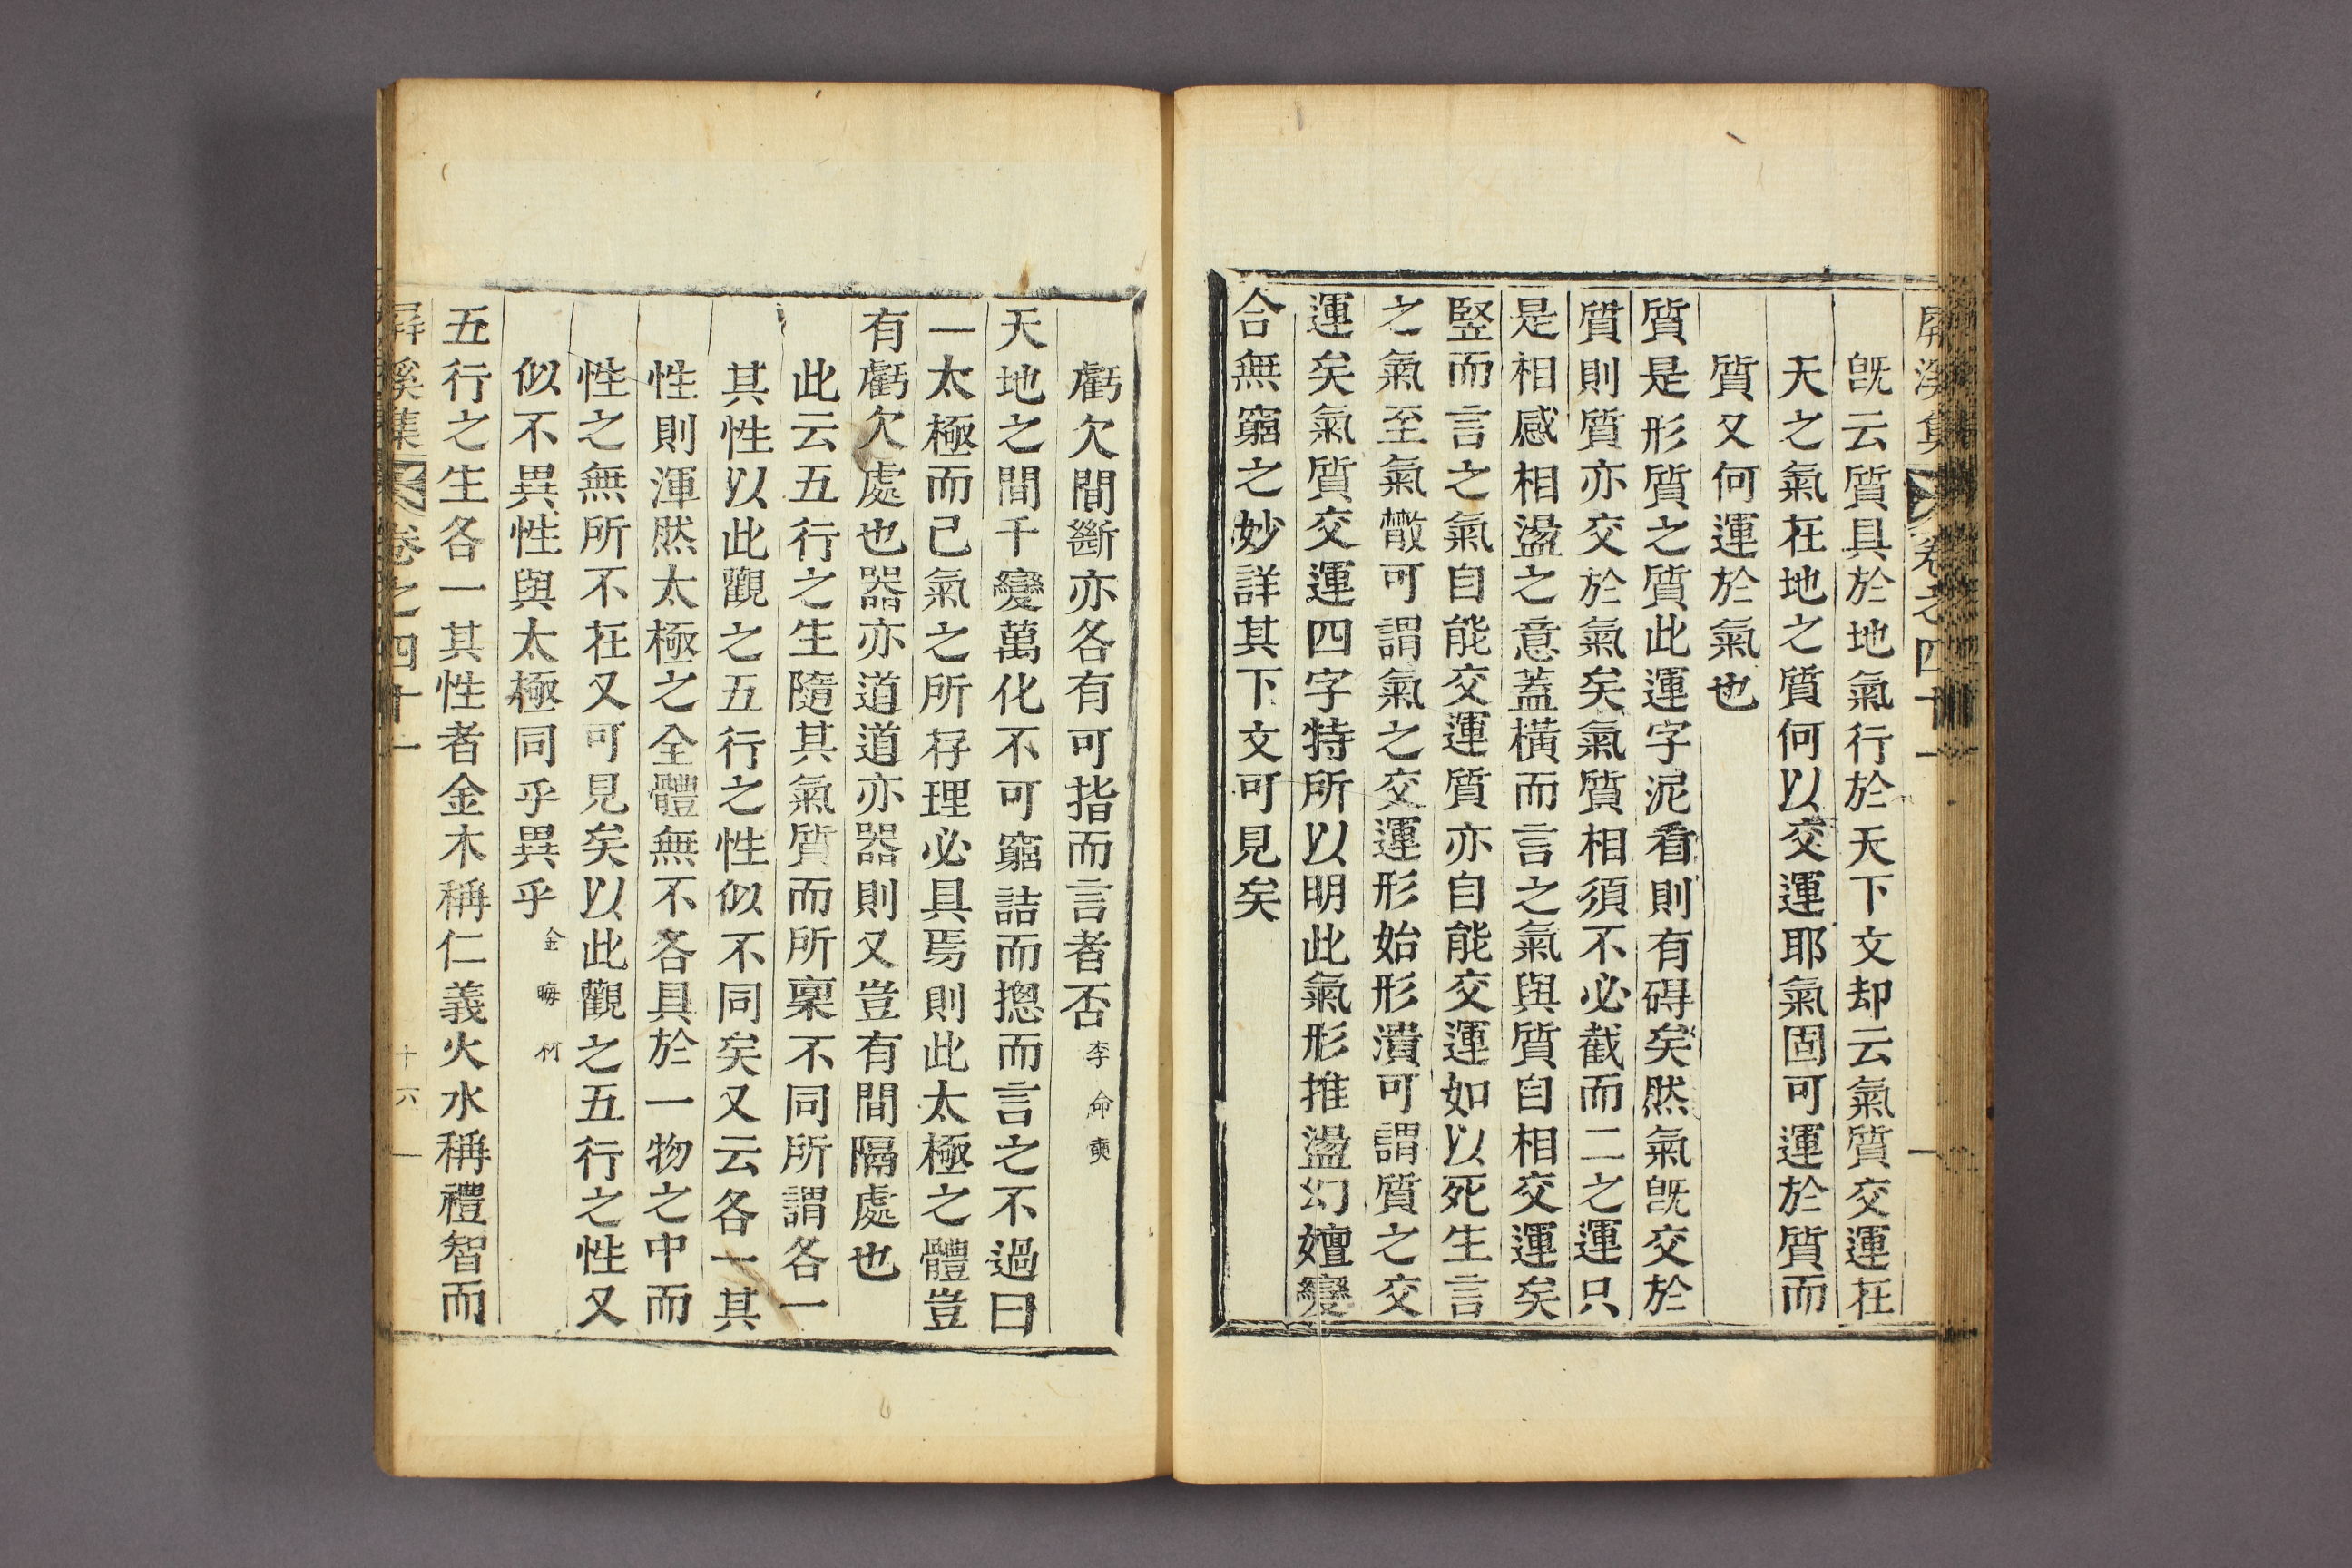 屛溪集 卷之四十一
旣云質具於地氣行於天下文却云氣質交運在
天之氣在地之質何以交運耶氣固可運於質而
質又何運於氣也
質是形質之質此運字泥看則有碍矣然氣旣交於
質則質亦交於氣矣氣質相須不必截而二之運只
是相感相盪之意蓋橫而言之氣與質自相交運矣
竪而言之氣自能交運質亦自能交運如以死生言
之氣至氣散可謂氣之交運形始形潰可謂質之交
運矣氣質交運四字特所以明此氣形推盪幻嬗變
合無窮之妙詳其下文可見矣
虧欠間斷亦各有可指而言者否李命奭
天地之間千變萬化不可窮詰而摠而言之不過曰
一太極而已氣之所存理必具焉則此太極之體豈
有虧欠處也器亦道道亦器則又豈有間隔處也
此云五行之生隨其氣質而所稟不同所謂各一
其性以此觀之五行之性似不同矣又云各一其
性則渾然太極之全體無不各具於一物之中而
性之無所不在又可見矣以此觀之五行之性又
似不異性與太極同乎異乎金晦柯
五行之生各一其性者金木稱仁義火水稱禮智而
屛溪集 卷之四十一 十六